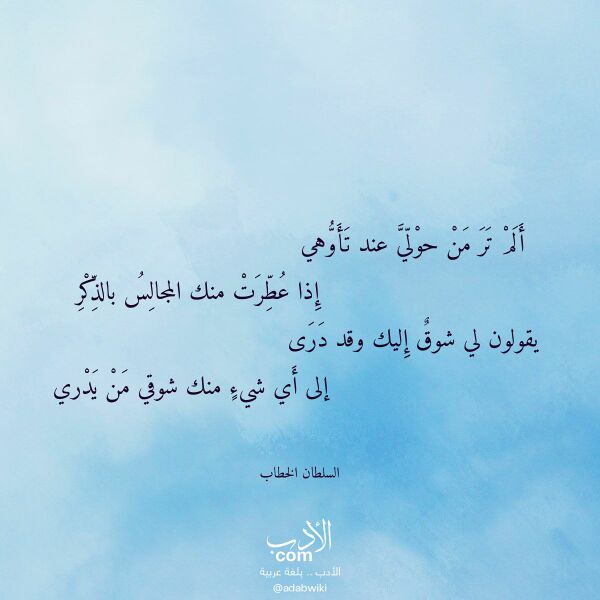 أَلَمْ تَرَ مَنْ حوْلَيَّ عند تَأَوُّهي
إِذا عُطِّرَتْ منك المجالِسُ بالذِّكْرِ
يقولون لي شوقٌ إِليك وقد دَرَى
إلى أَي شيءٍ منك شوقي مَنْ يَدْري
السلطان الخطاب
الأدب
com
الأدب .. بلغة عربية
@adabwiki